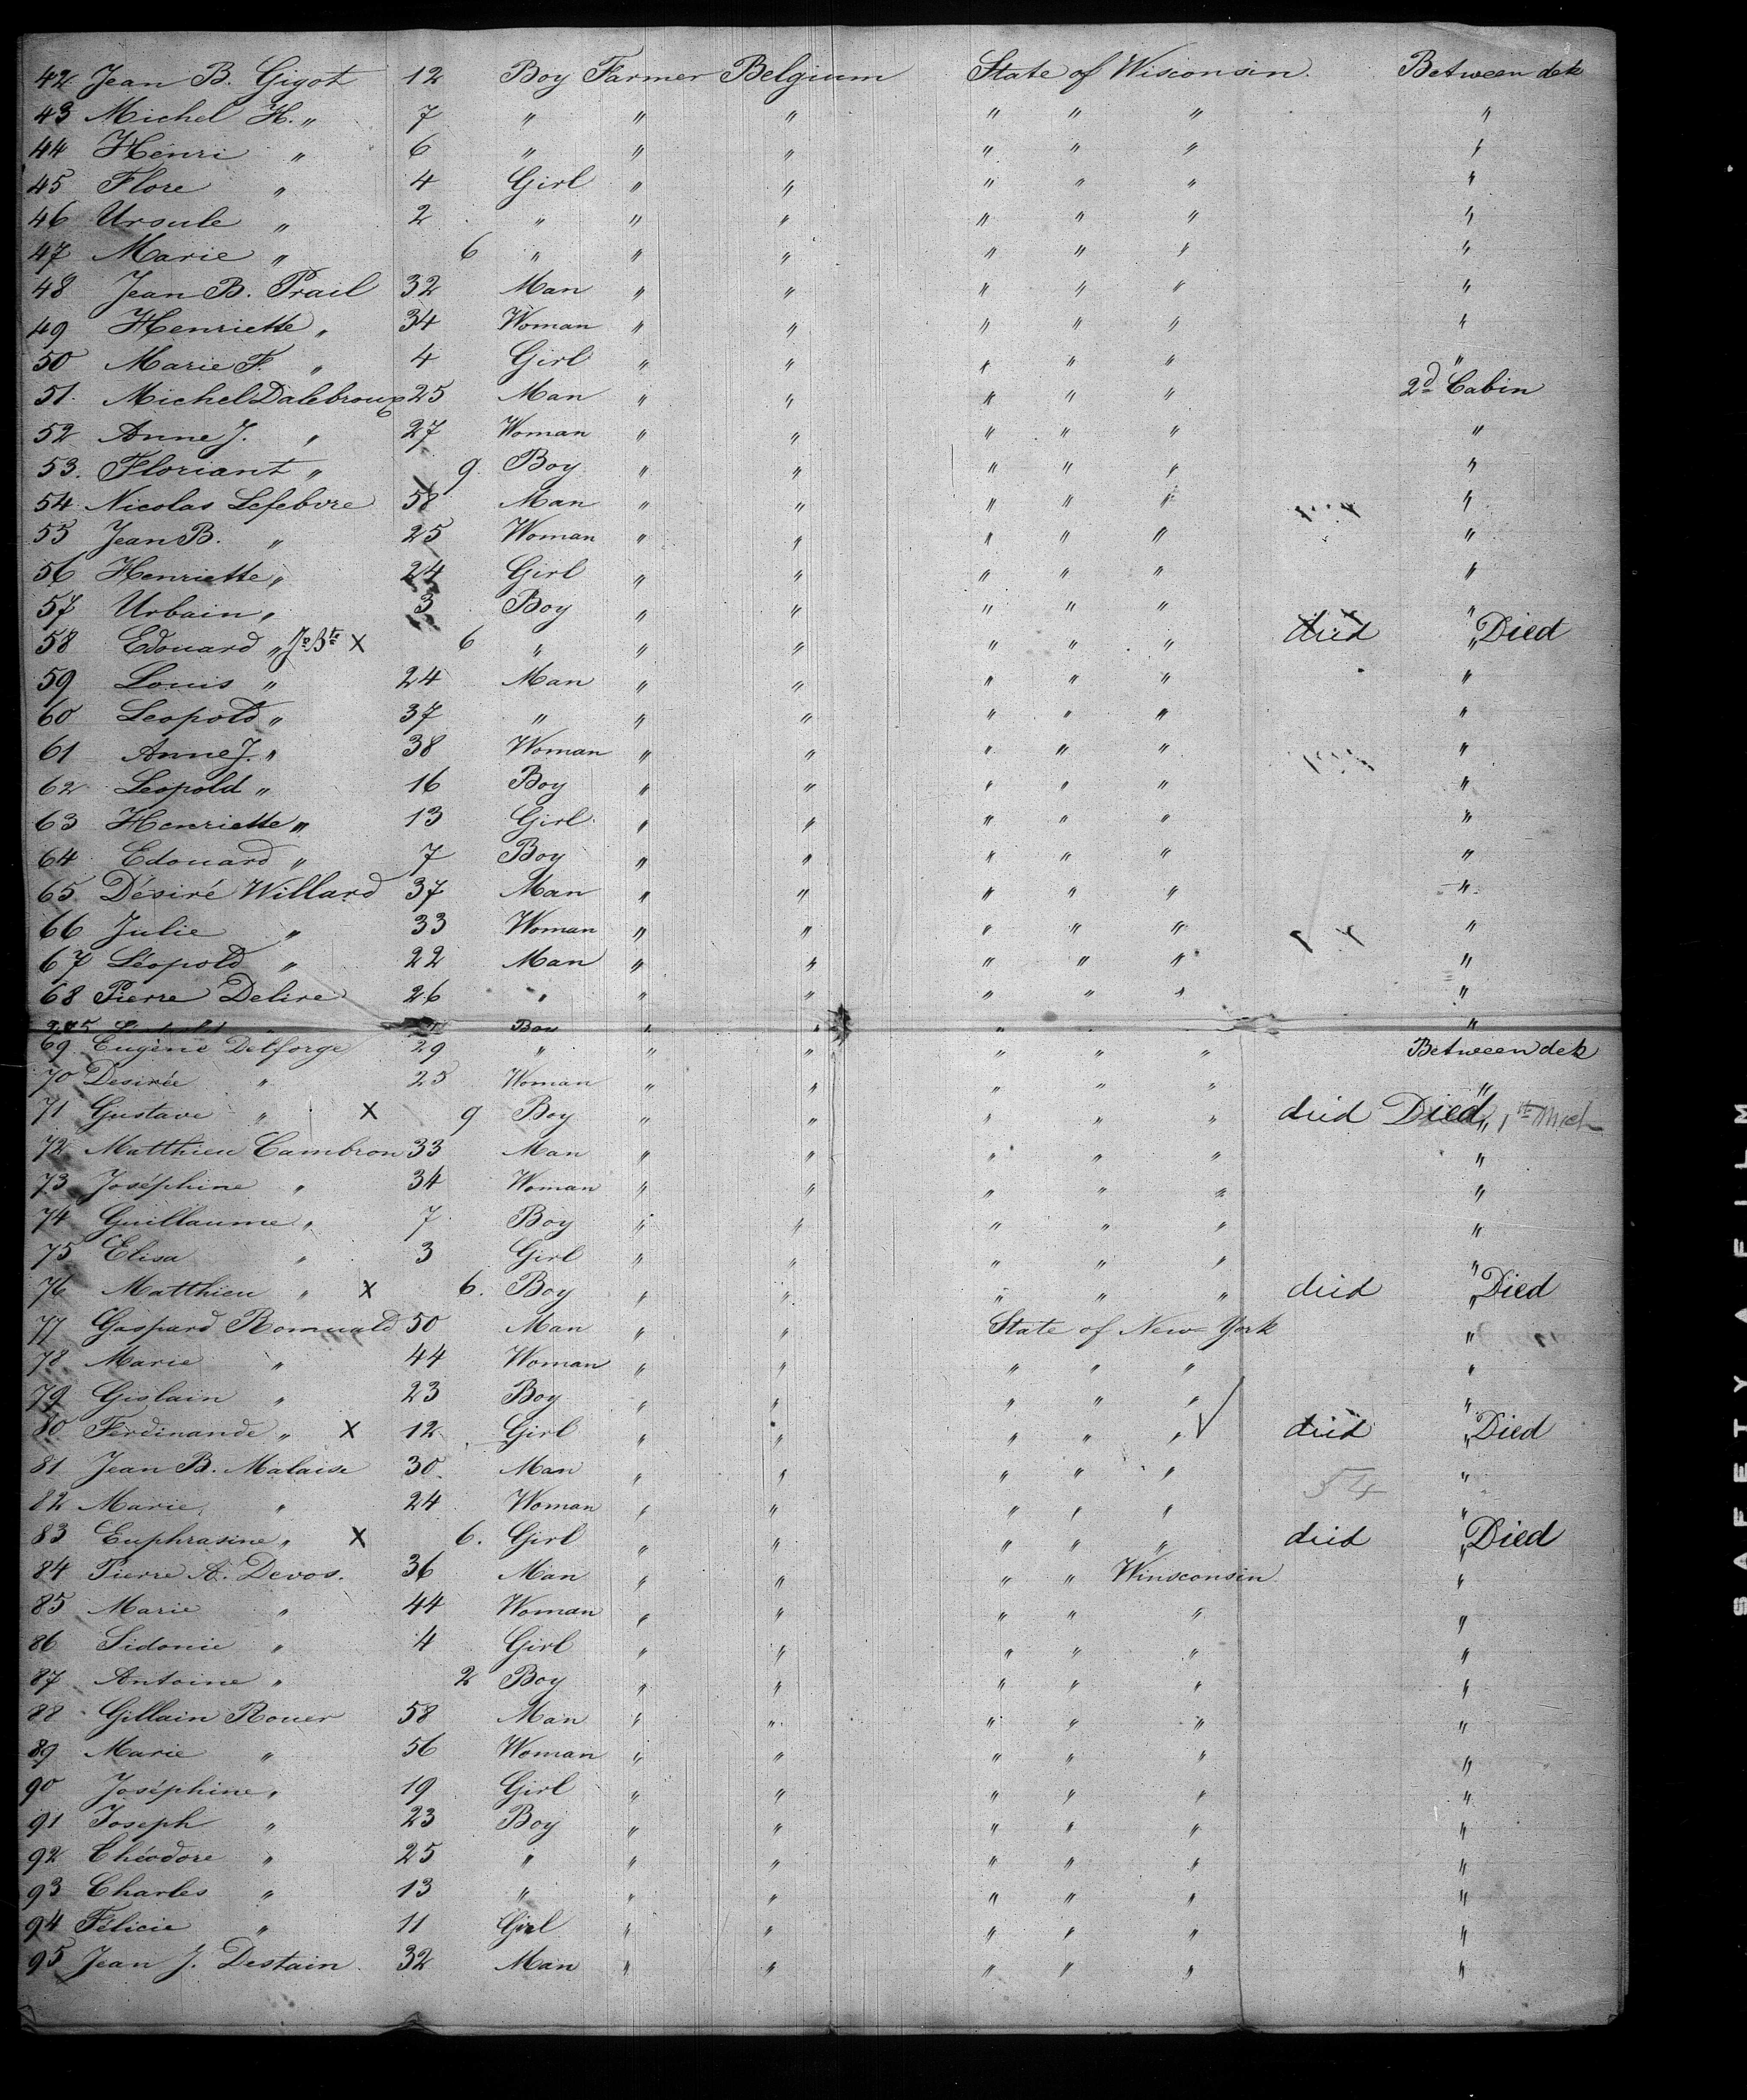 42 Jean B. Gigot 12 Boy Farmer Belgium State of Wisconsin. Between dek
43 Michel H. " 7 " " " " " " "
44 Henri " 6 " " " " " " "
45 Flore " 4 Girl " " " " " "
46 Ursule " 2 " " " " " " "
47 Marie " 6 " " " " " " "
48 Jean B. Prail 32 Man " " " " " "
49 Henriette " 34 Woman " " " " " "
50 Marie F. " 4 Girl " " " " " "
51. Michel Dalebroux 25 Man " " " " " 2d Cabin
52 Anne J. " 27 Woman " " " " " "
53. Floriant " 9. Boy " " " " " "
54 Nicolas Lefebvre 58 Man " " " " " "
55 Jean B. " 25 Woman " " " " " "
56 Henriette " 24 Girl " " " " " "
57 Urbain " 3 Boy " " " " " "
58 Edouard " Jn Bte X 6 " " " " " " died " Died
59 Louis " 24 Man " " " " " "
60 Leopold " 37 " " " " " " "
61 Anne J. " 38 Woman " " " " " "
62 Leopold " 16 Boy " " " " " "
63 Henriette " 13 Girl " " " " " "
64 Edouard " 7 Boy " " " " " "
65 Désiré Willard 37 Man " " " " " "
66 Julie " 33 Woman " " " " " "
67 Léopold " 22 Man " " " " " "
68 Pierre Delire 26 " " " " " " "
Boy " " " " " "
69 Eugène Delforge 29 " " " " " " Between dek
70 Desirée " 25 Woman " " " " " "
71 Gustave " X 9 Boy " " " " " died Died "
72 Matthieu Cambron 33 Man " " " " " "
73 Joséphine " 34 Woman " " " " " "
74 Guillaume " 7 Boy " " " " " "
75 Elisa " 3 Girl " " " " " "
76 Matthieu " X 6. Boy " " " " " died " Died
77 Gaspard Romuald 50 Man " " State of New-York "
78 Marie " 44 Woman " " " " " "
79 Gislain " 23 Boy " " " " " "
80 Ferdinande " X 12 Girl " " " " " died " Died
81 Jean B. Malaise 30 Man " " " " " "
54
82 Marie " 24 Woman " " " " " "
83 Euphrasine " X 6. Girl " " " " " died " Died
84 Pierre A. Devos. 36 Man " " " " Winsconsin "
85 Marie " 44 Woman " " " " " "
86 Sidonie " 4 Girl " " " " " "
87 Antoine " 2 Boy " " " " " "
88 Gillain Rouer 58 Man " " " " " "
89 Marie " 56 Woman " " " " " "
90 Joséphine " 19 Girl " " " " " "
91 Joseph " 23 Boy " " " " " "
92 Théodore " 25 " " " " " " "
93 Charles " 13 " " " " " " "
94 Félicie " 11 Girl " " " " " "
95 Jean J. Destain 32 Man " " " " " "
SAFETY FILM